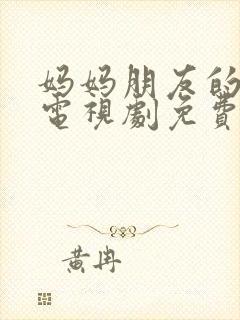 妈妈朋友的
電視劇免費
黃冉